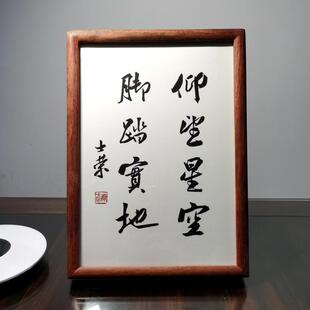 仰望星空
脚踏實地
士榮